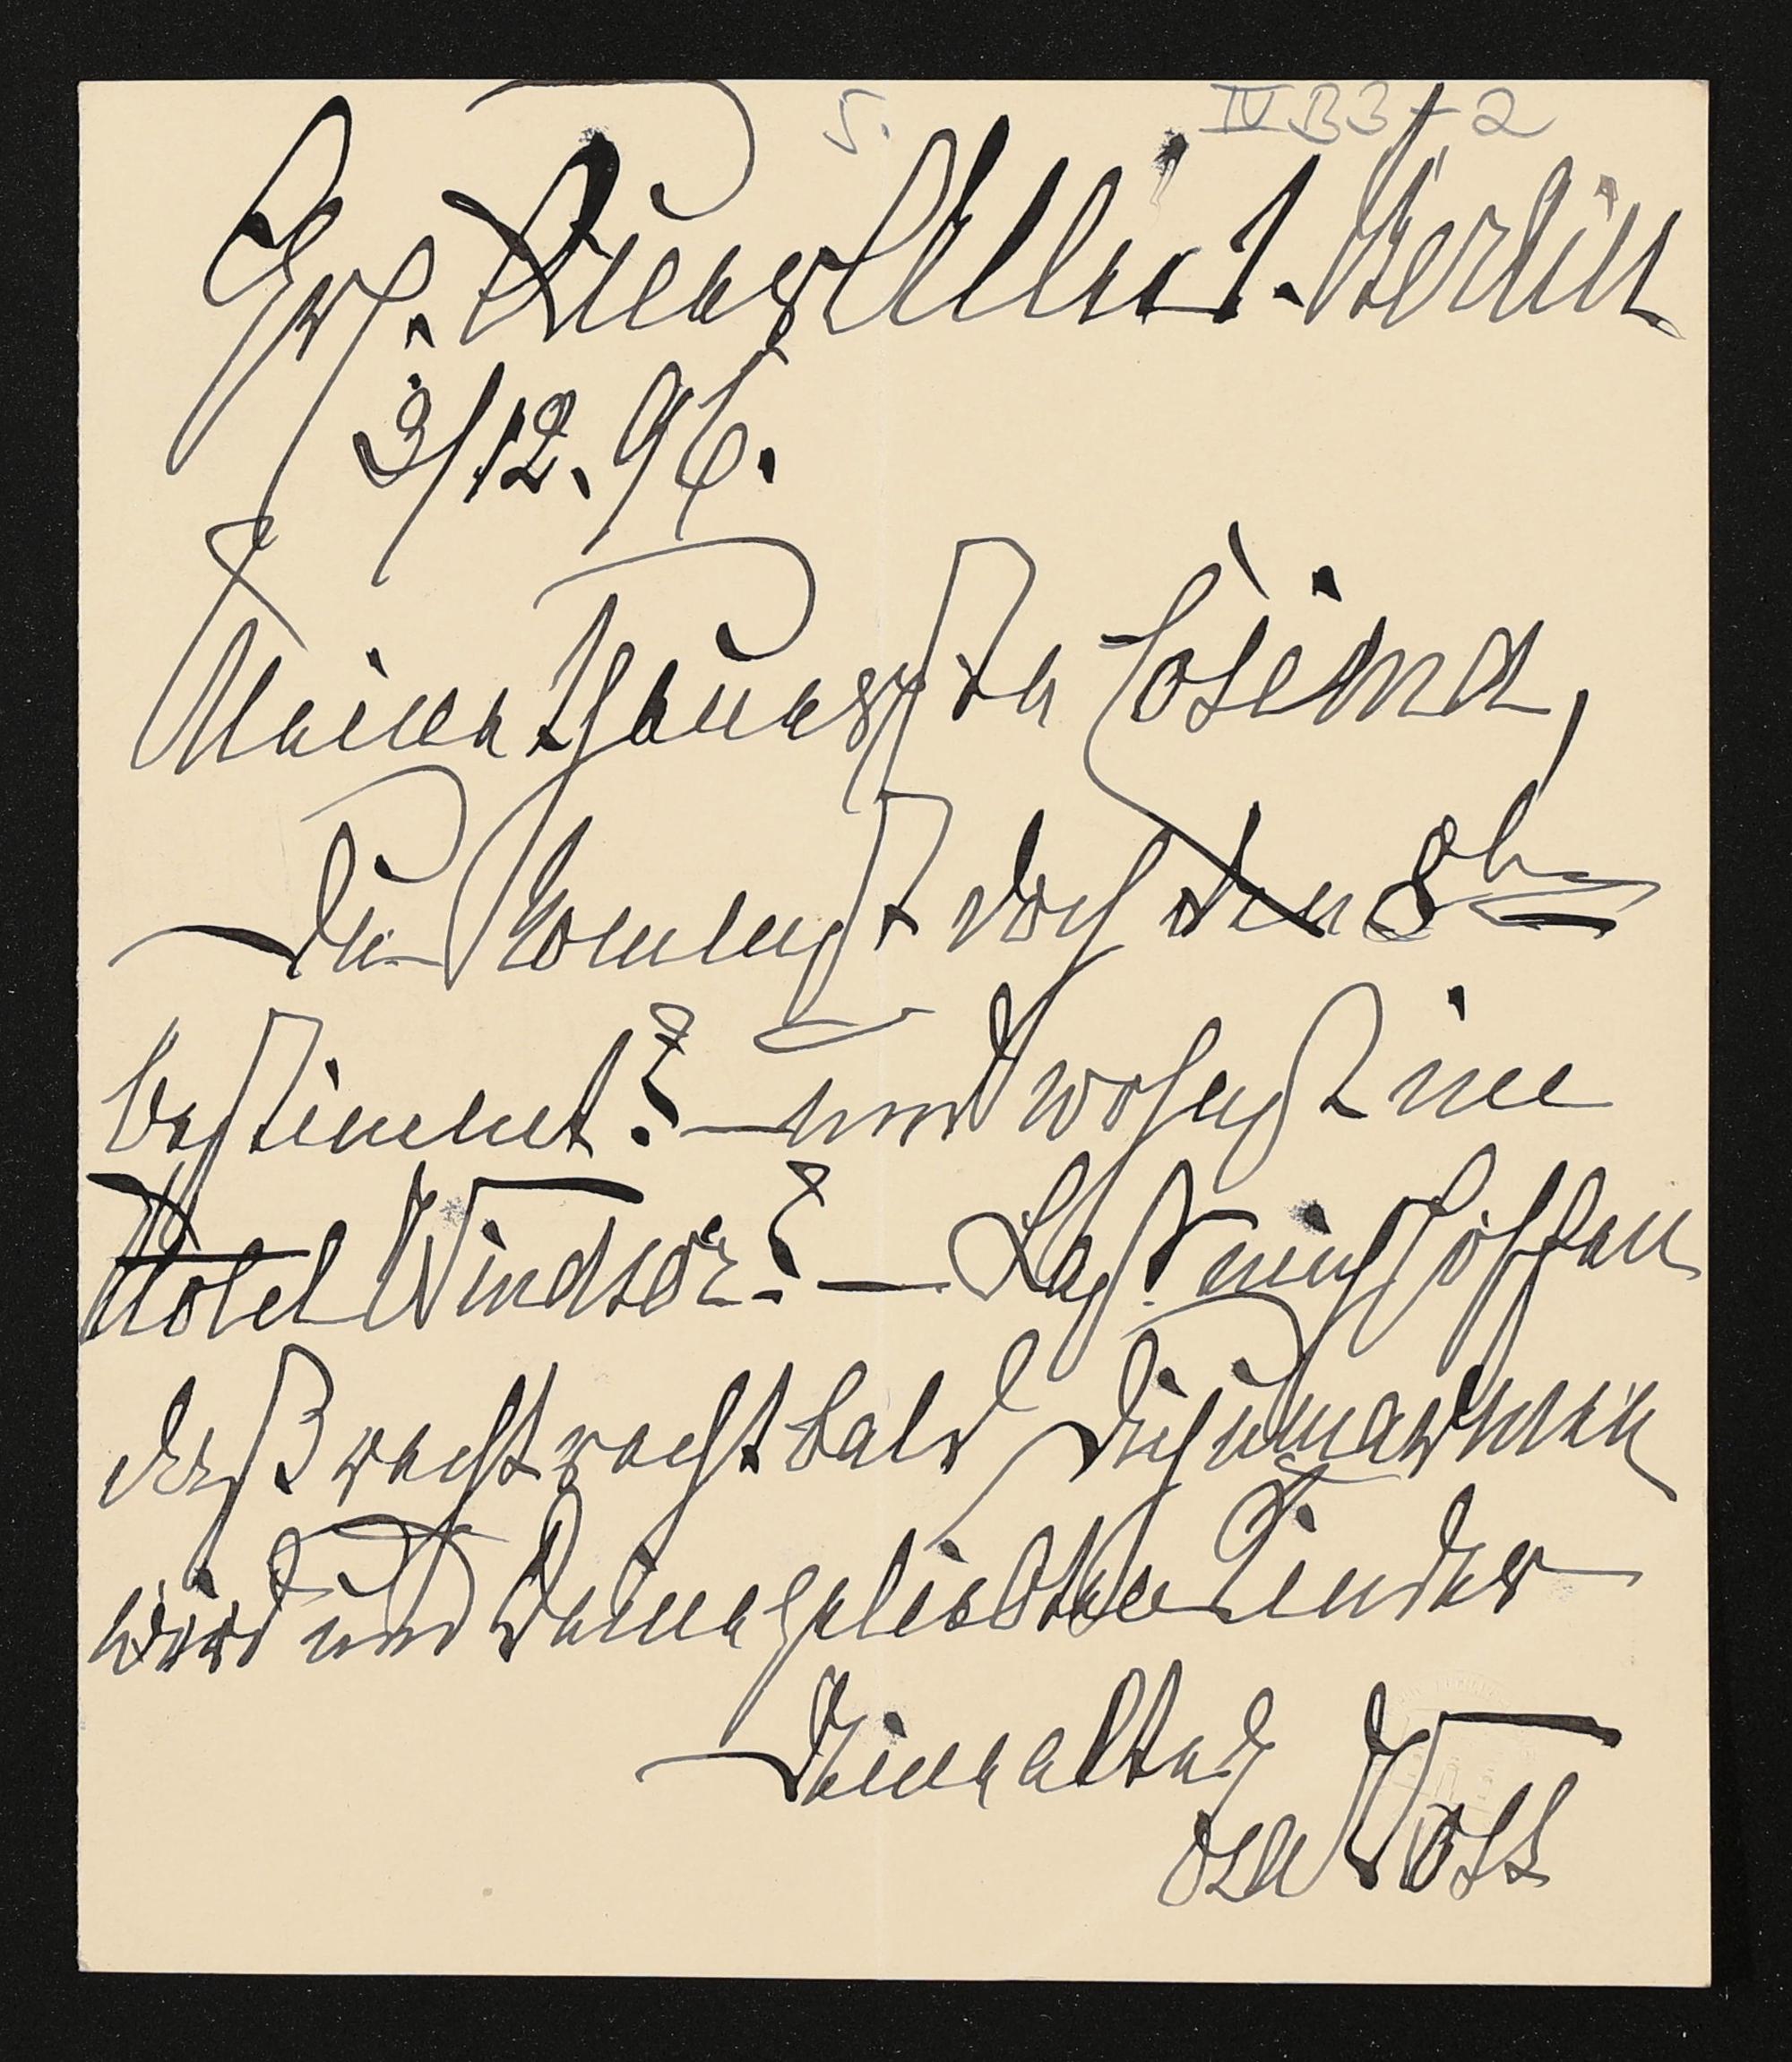 5. IV B 3 f-2
Gr. Querallee 1. Berlin
3/12. 96.
Meine theuerste Cosima,
Du kommst doch den 8t
bestimmt? – und wohnst im
Hotel Windsor? – Laß mich hoffen
daß recht recht bald Dich umarmen
wird und Deine geliebten Kinder
Deine alte
Voss